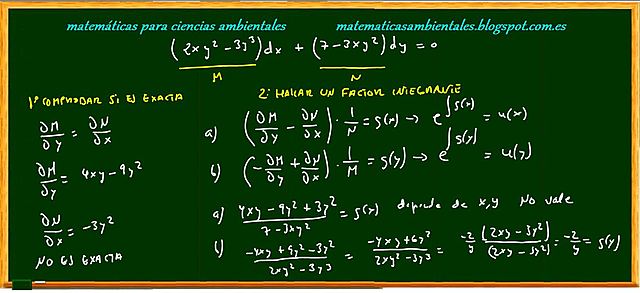 matemáticas para ciencias ambientales matematicasambientales.blogspot.com.es
(2xy² - 3y³)dx + (7 - 3xy²)dy = 0
M N
1º COMPROBAR SI ES EXACTA
∂M/∂y = ∂N/∂x
∂M/∂y = 4xy - 9y²
∂N/∂x = -3y²
NO ES EXACTA
2º HALLAR UN FACTOR INTEGRANTE
a) (∂M/∂y - ∂N/∂x) · 1/N = g(x) → e^∫g(x) = u(x)
b) (-∂M/∂y + ∂N/∂x) · 1/M = g(y) → e^∫g(y) = u(y)
a) (4xy - 9y² + 3y²)/(7 - 3xy²) = g(x) depende de x,y No vale
b) (-4xy + 9y² - 3y²)/(2xy² - 3y³) = (-4xy + 6y²)/(2xy² - 3y³) = -2/y (2xy - 3y²)/(2xy - 3y²) = -2/y = g(y)